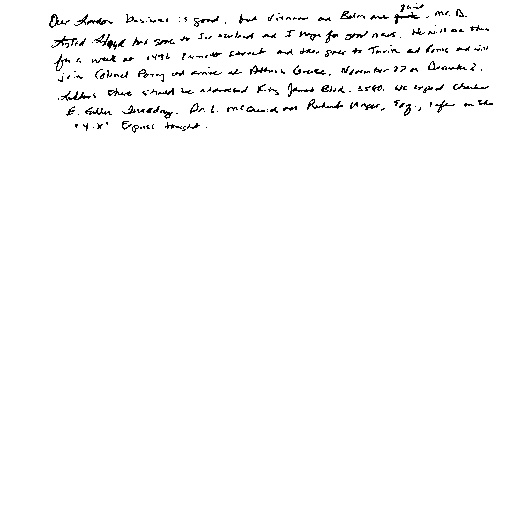 Our London business is good, but Vienna and Berlin are quiet. Mr. D.
Lloyd has gone to Switzerland and I hope for good news. He will be there
for a week at 1496 Zermott Street and then goes to Turin and Rome and will
join Colonel Parry and arrive at Athens, Greece, November 27 or December 2.
Letters there should be addressed King James Blvd. 3580. We expect Charles
E. Fuller Tuesday. Dr. L. McQuaid and Robert Unger, Esq., left on the
"Y.X." Express tonight.